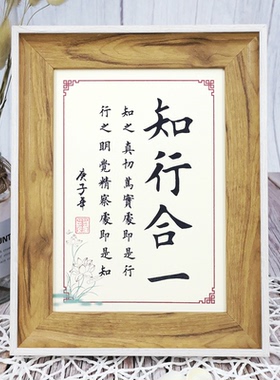 知行合一
知之真切篤實處即是行
行之明覺精察處即是知
庚子年